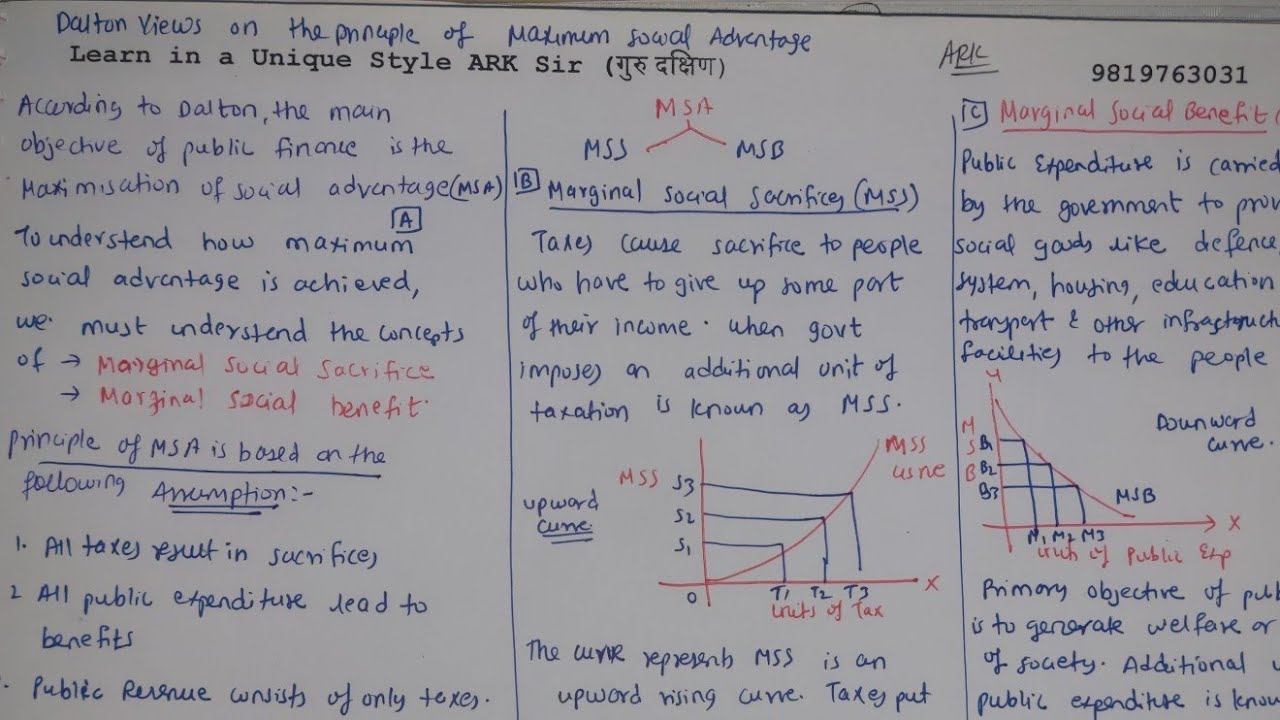 Dalton Views on the principle of Maximum Social Advantage
Learn in a Unique Style ARK Sir (गुरु दक्षिण)
ARK
9819763031
According to Dalton, the main
objective of public finance is the
Maximisation of social advantage (MSA)
A
To understand how maximum
social advantage is achieved,
we must understand the concepts
of → Marginal Social Sacrifice
→ Marginal social benefit.
Principle of MSA is based on the
following Assumption:-
1. All taxes result in sacrifices
2 All public expenditure lead to
benefits
Public Revenue consists of only taxes.
MSA
MSS MSB
B Marginal Social Sacrifices (MSS)
Taxes cause sacrifice to people
who have to give up some part
of their income. when govt
imposes an additional unit of
taxation is known as MSS.
upward
curve
MSS
MSS
curve
S3
S2
S1
O
T1 T2 T3
X
Units of Tax
The curve represents MSS is an
upward rising curve. Taxes put
C Marginal Social Benefit (
Public Expenditure is carried
by the government to prov
social goods like defence,
system, housing, education
transport & other infrastruct
facilities to the people
Y
M
S
B
B1
B2
B3
Downward
curve.
MSB
M1 M2 M3
X
Units of Public Exp
Primary objective of pub
is to generate welfare or
of society. Additional u
public expenditure is know